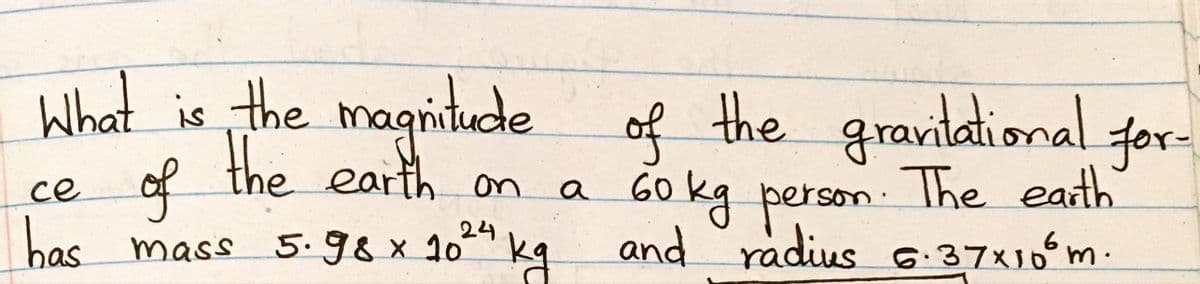 What is the magnitude of the gravitational for-
ce of the earth on a 60 kg person. The earth
has mass 5.98 x 10²⁴ kg and radius 6.37x10⁶ m.